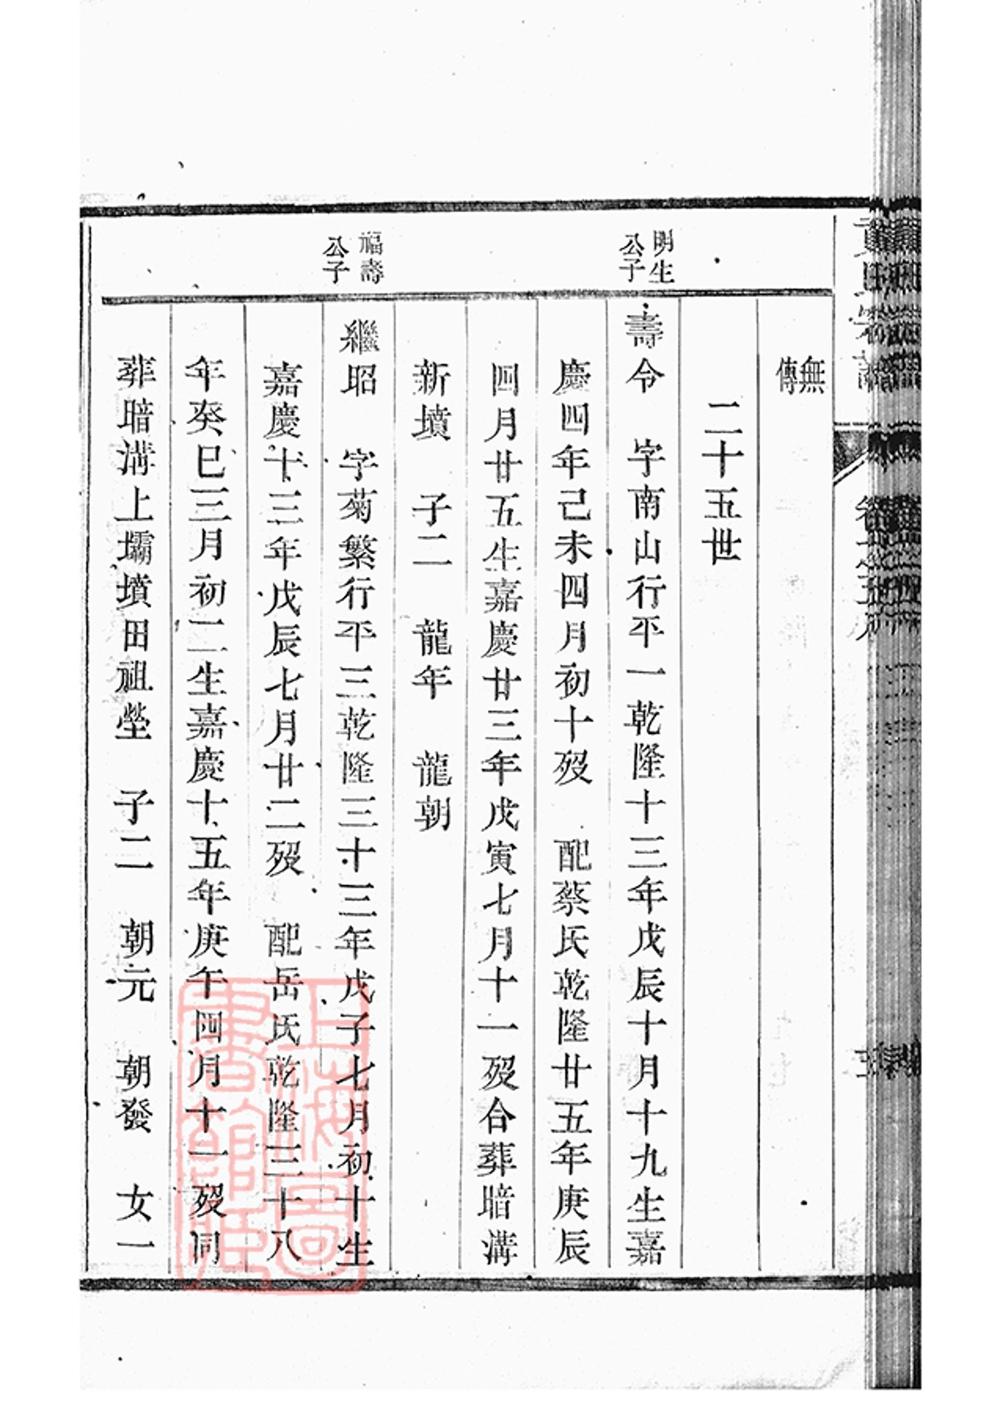 無
傳
二十五世
明生
公子
壽令　字南山行平一乾隆十三年戊辰十月十九生嘉
慶四年己未四月初十歿　配蔡氏乾隆廿五年庚辰
四月廿五生嘉慶廿三年戊寅七月十一歿合葬暗溝
新墳　子二　龍年　龍朝
福壽
公子
繼昭　字菊繁行平三乾隆三十三年戊子七月初十生
嘉慶十三年戊辰七月廿二歿　配岳氏乾隆三十八
年癸巳三月初二生嘉慶十五年庚午四月十一歿同
葬暗溝上壩墳田祖塋　子二　朝元　朝發　女一
上海圖
書館藏